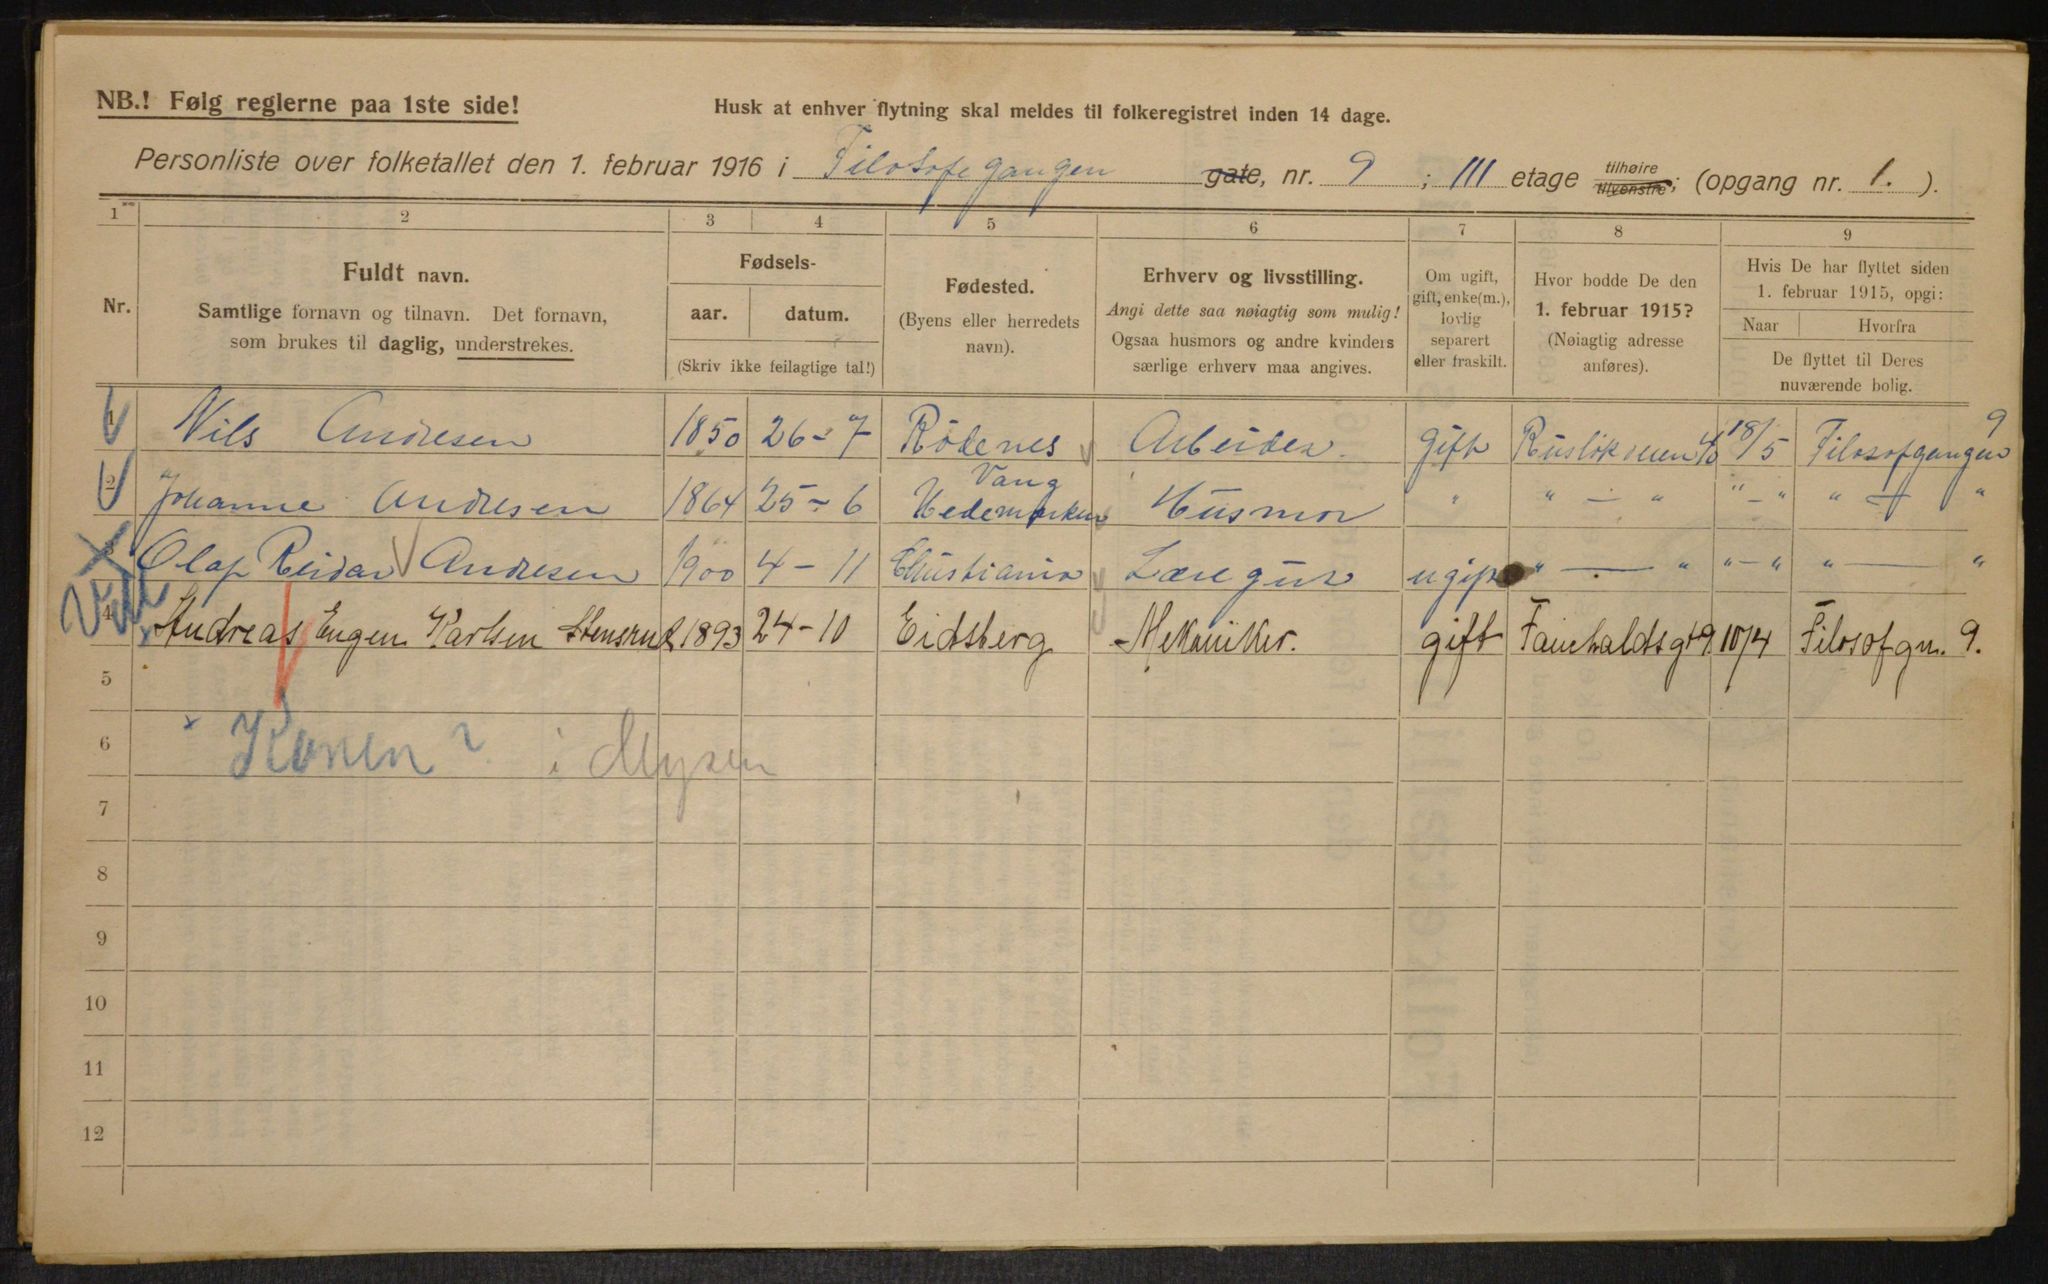 NB.! Følg reglerne paa 1ste side!
Husk at enhver flytning skal meldes til folkeregistret inden 14 dage.
Personliste over folketallet den 1. februar 1916 i Filosofegangen gate, nr. 9 ; III etage tilhøire tilvenstre; (opgang nr. 1. ).
1 2 3 4 5 6 7 8 9
Nr.
Fuldt navn.
Samtlige fornavn og tilnavn. Det fornavn,
som brukes til daglig, understrekes.
Fødsels-
aar. datum.
(Skriv ikke feilagtige tal!)
Fødested.
(Byens eller herredets
navn).
Erhverv og livsstilling.
Angi dette saa nøiagtig som mulig!
Ogsaa husmors og andre kvinders
særlige erhverv maa angives.
Om ugift,
gift, enke(m.),
lovlig
separert
eller fraskilt.
Hvor bodde De den
1. februar 1915?
(Nøiagtig adresse
anføres).
Hvis De har flyttet siden
1. februar 1915, opgi:
Naar Hvorfra
De flyttet til Deres
nuværende bolig.
1 Nils Andresen 1850 26-7 Rödenes Arbeider. Gift 18/5 Filosofgangen 9
2 Johanne Andresen 1864 25-6 Vang Hedemarken Husmor " " — " "-" " — "
3 Olaf Reidar Andresen 1900 4-11 Christiania ugift " — " "-" " — "
4 Andreas Eugen Karlsen Stensrud 1893 24-10 Eidsberg Mekaniker. gift 10/4 Filosofgn. 9.
5
6 × Konen? i Mysen
7
8
9
10
11
12